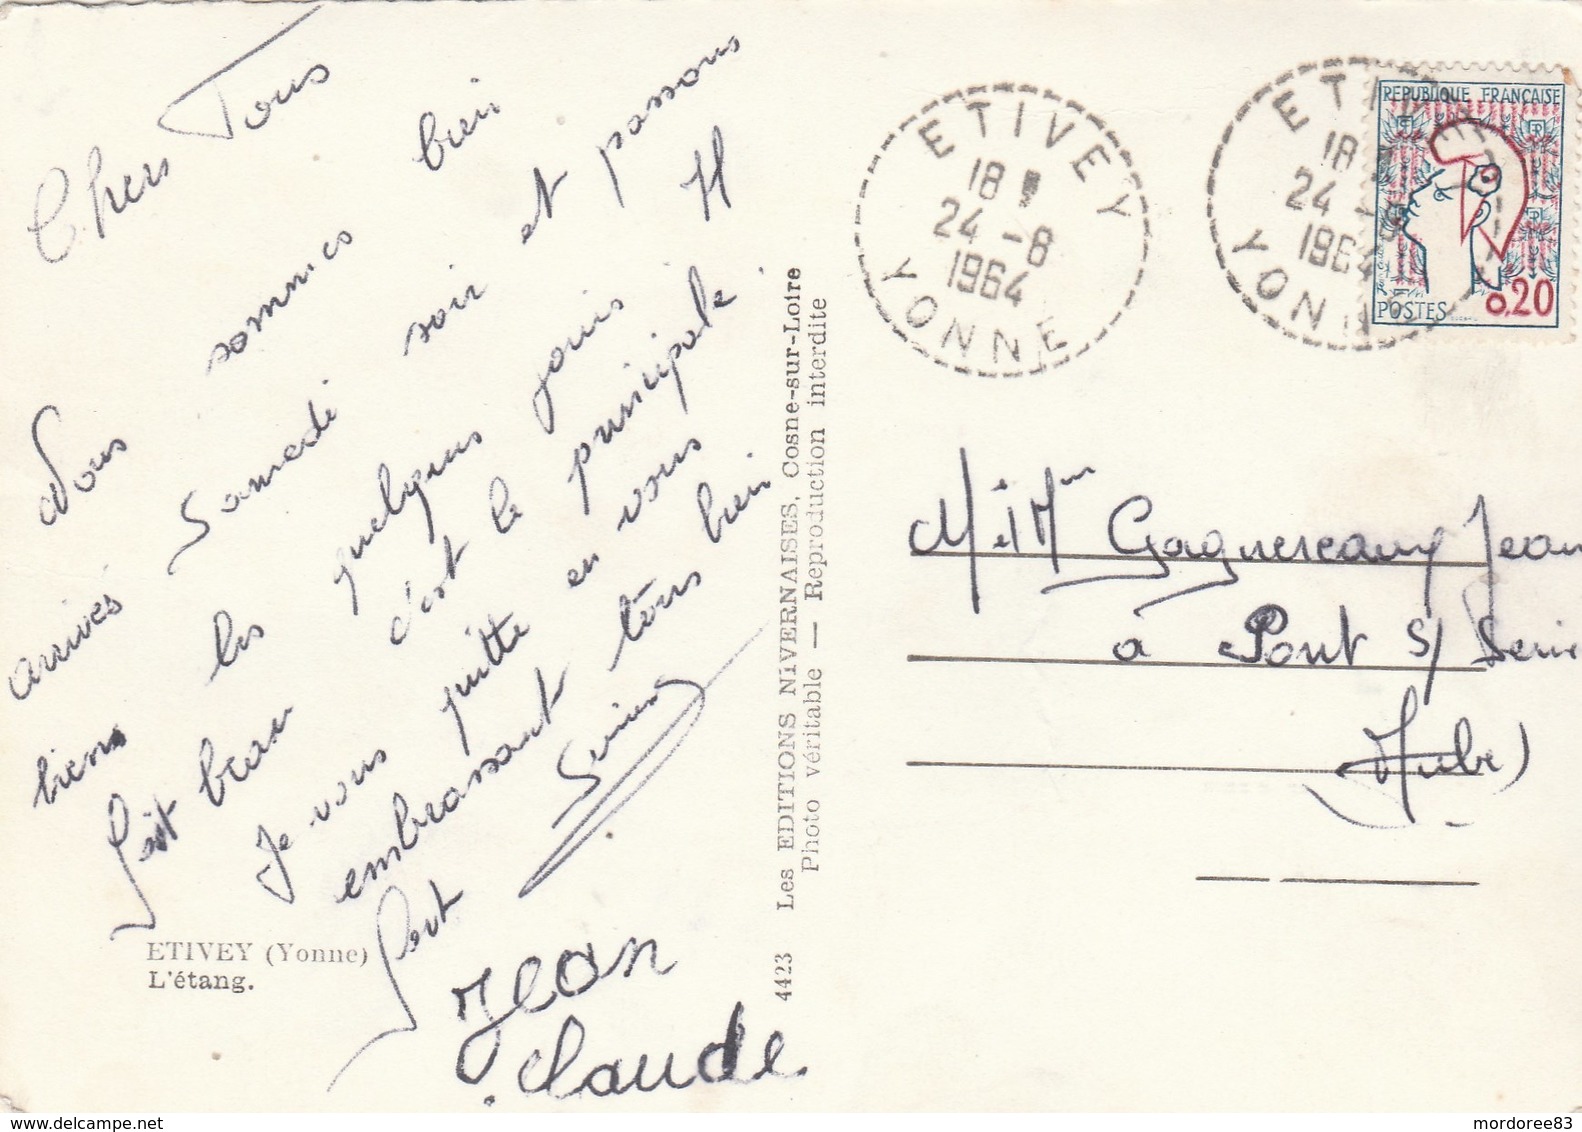 Chers Tous
Nous sommes bien
arrivés Samedi soir et passons
biens les quelques jours Il
fait beau c'est le principale
Je vous quitte en vous
embrassant tous bien
fort
Jean
Claude
ETIVEY (Yonne)
L'étang.
4423 Les EDITIONS NIVERNAISES, Cosne-sur-Loire
Photo véritable — Reproduction interdite
ETIVEY
18
24 -8
1964
YONNE
ETIVEY
18
24 -8
1964
YONNE
REPUBLIQUE FRANÇAISE
POSTES 0,20
M et Mm Gagnereaux Jean
à Pont s/ Seine
Aube)
delcampe.net
mordoree83